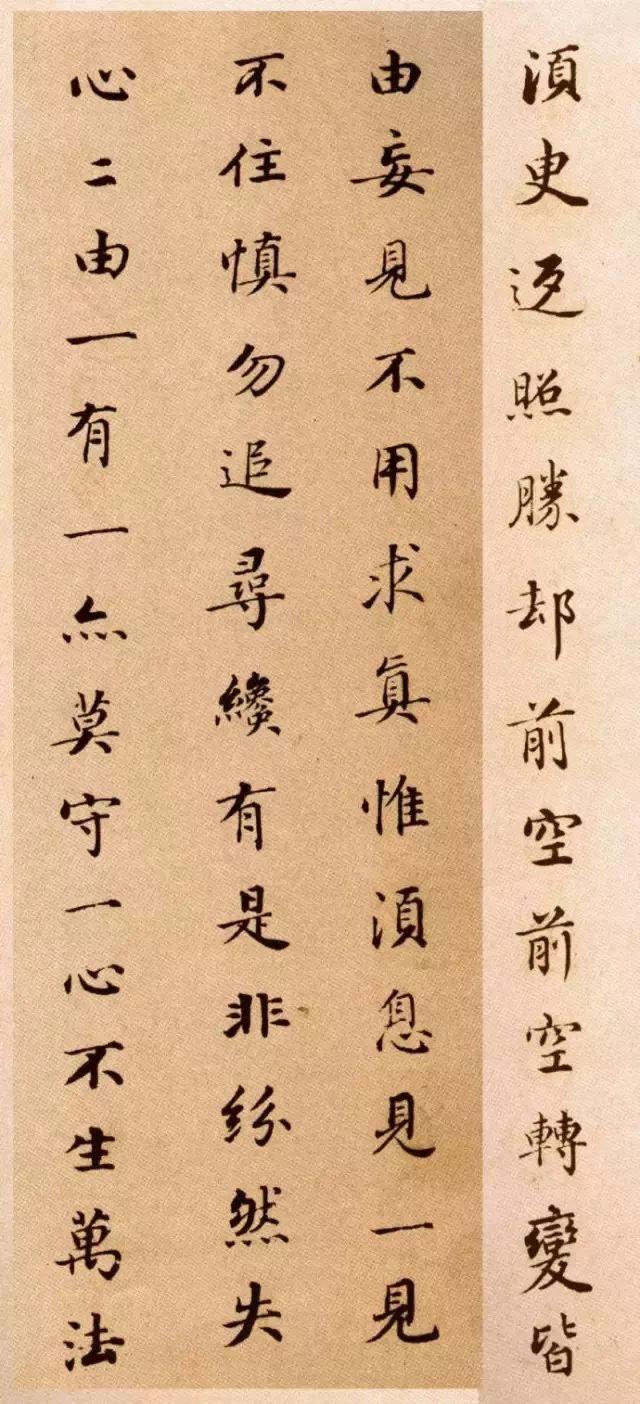 須臾返照勝却前空前空轉變皆
由妄見不用求真惟須息見一見
不住慎勿追尋纔有是非紛然失
心二由一有一亦莫守一心不生萬法